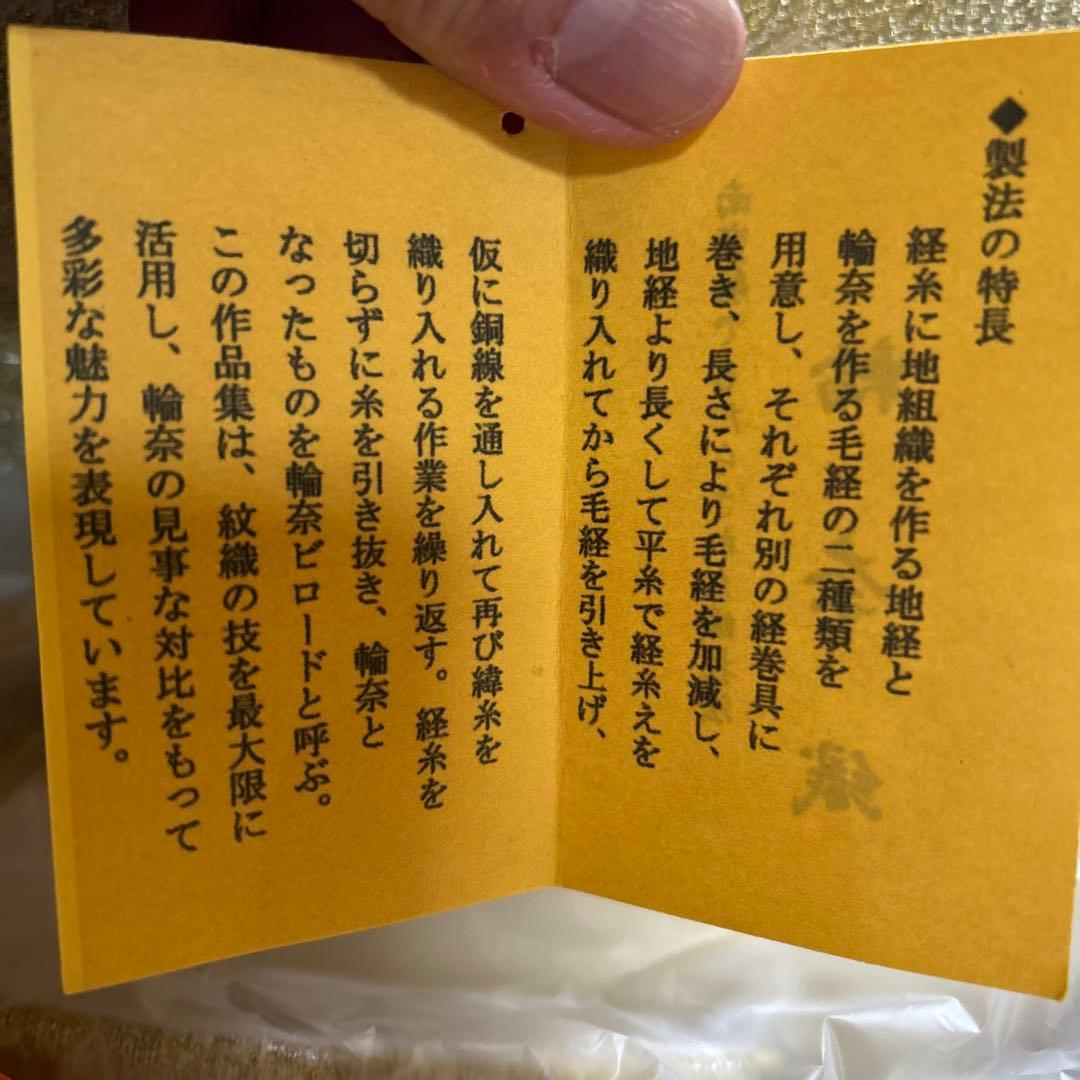 ◆製法の特長
経糸に地組織を作る地経と
輪奈を作る毛経の二種類を
用意し、それぞれ別の経巻具に
巻き、長さにより毛経を加減し、
地経より長くして平糸で経糸えを
織り入れてから毛経を引き上げ、
仮に銅線を通し入れて再び緯糸を
織り入れる作業を繰り返す。経糸を
切らずに糸を引き抜き、輪奈と
なったものを輪奈ビロードと呼ぶ。
この作品集は、紋織の技を最大限に
活用し、輪奈の見事な対比をもって
多彩な魅力を表現しています。